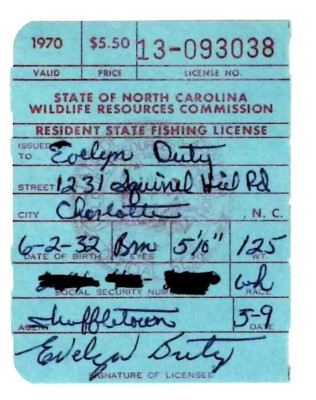 1970 $5.50 13-093038
VALID PRICE LICENSE NO.
STATE OF NORTH CAROLINA
WILDLIFE RESOURCES COMMISSION
RESIDENT STATE FISHING LICENSE
ISSUED TO Evelyn Duty
STREET 1231 Squirrel Hill Rd
CITY Charlotte , N. C.
6-2-32 Brn 5'10" 125
DATE OF BIRTH EYES HT. WT.
wh
SOCIAL SECURITY NUM RACE
AGENT Shuffletown 5-9
DATE
Evelyn Duty
SIGNATURE OF LICENSEE